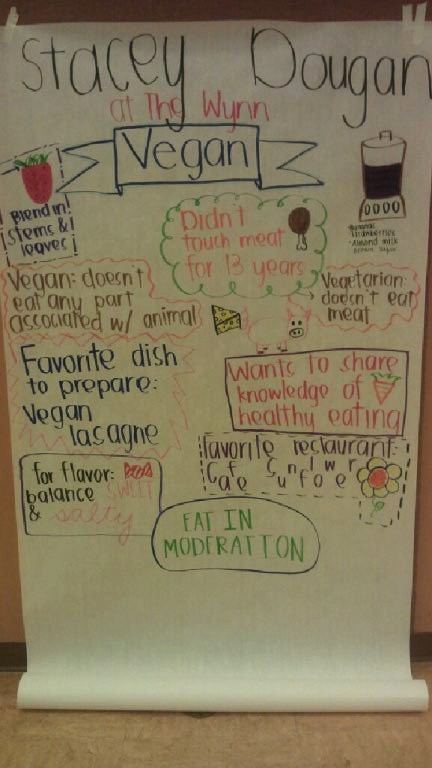 Stacey Dougan
at The Wynn
Vegan
Blend in!
stems &
leaves
Didn't
touch meat
for 13 years
Bananas
strawberries
Almond milk
Vegan: doesn't
eat any part
associated w/ animal
Vegetarian:
doesn't eat
meat
Favorite dish
to prepare:
Vegan
lasagne
Wants to share
knowledge of
healthy eating
Favorite restaurant:
Cafe Sunflower
for flavor:
balance SWEET
& salty
EAT IN
MODERATION